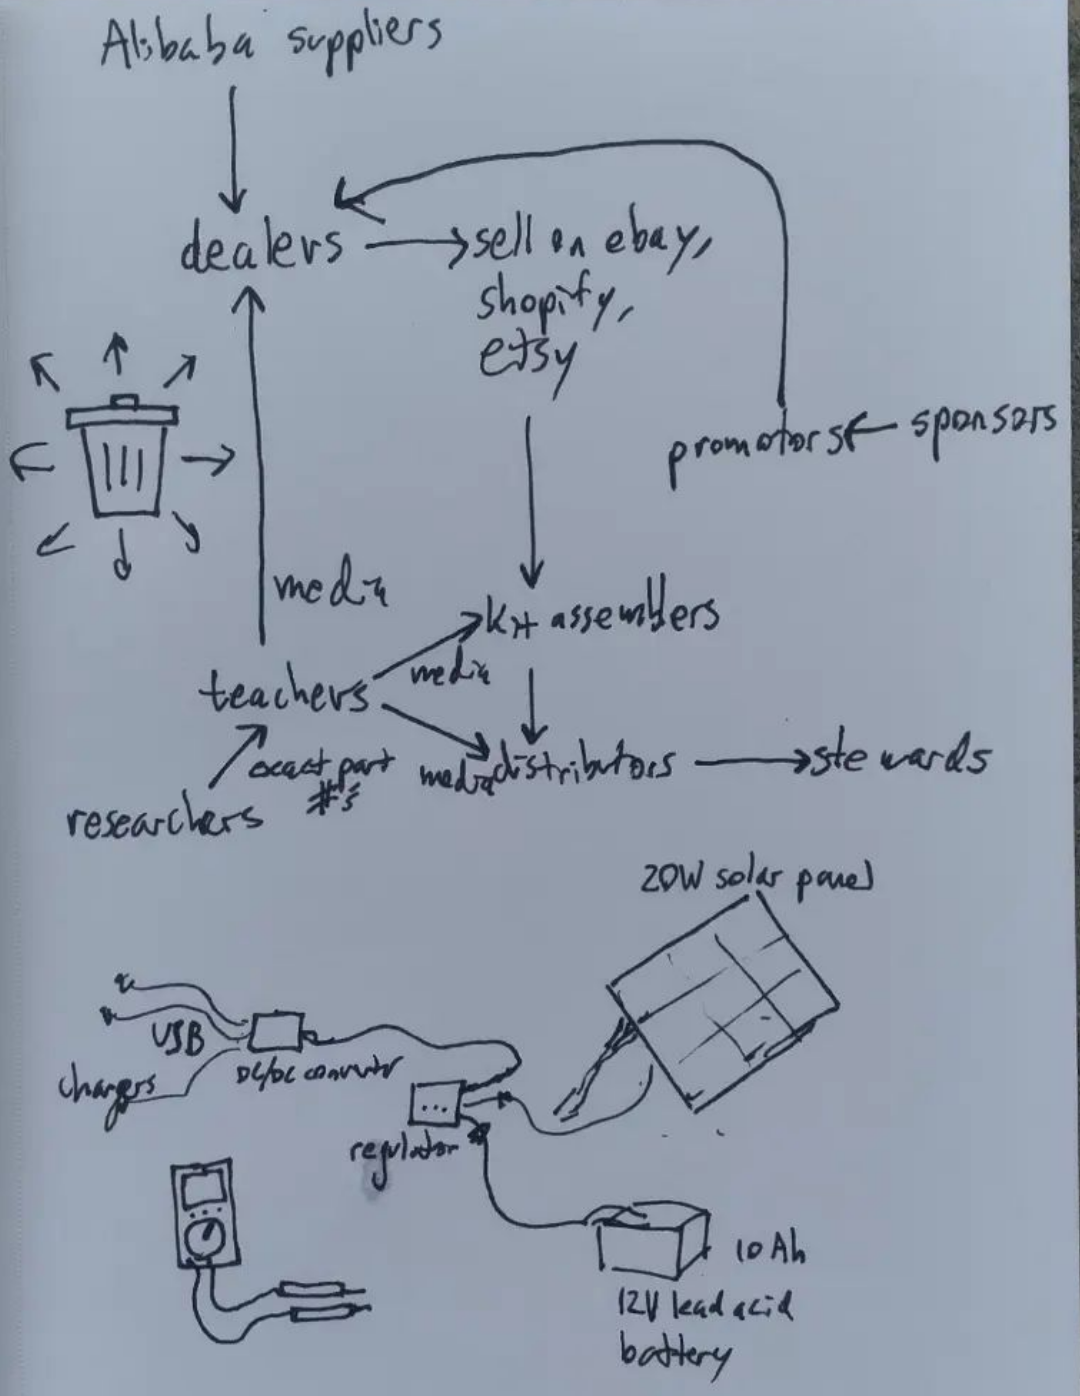 Alibaba suppliers
dealers
sell on ebay,
shopify,
etsy
promotors
sponsors
media
kit assemblers
media
teachers
exact part
#'s
media
distributors
stewards
researchers
20W solar panel
USB
chargers
DC/DC convertr
regulator
10 Ah
12V lead acid
battery